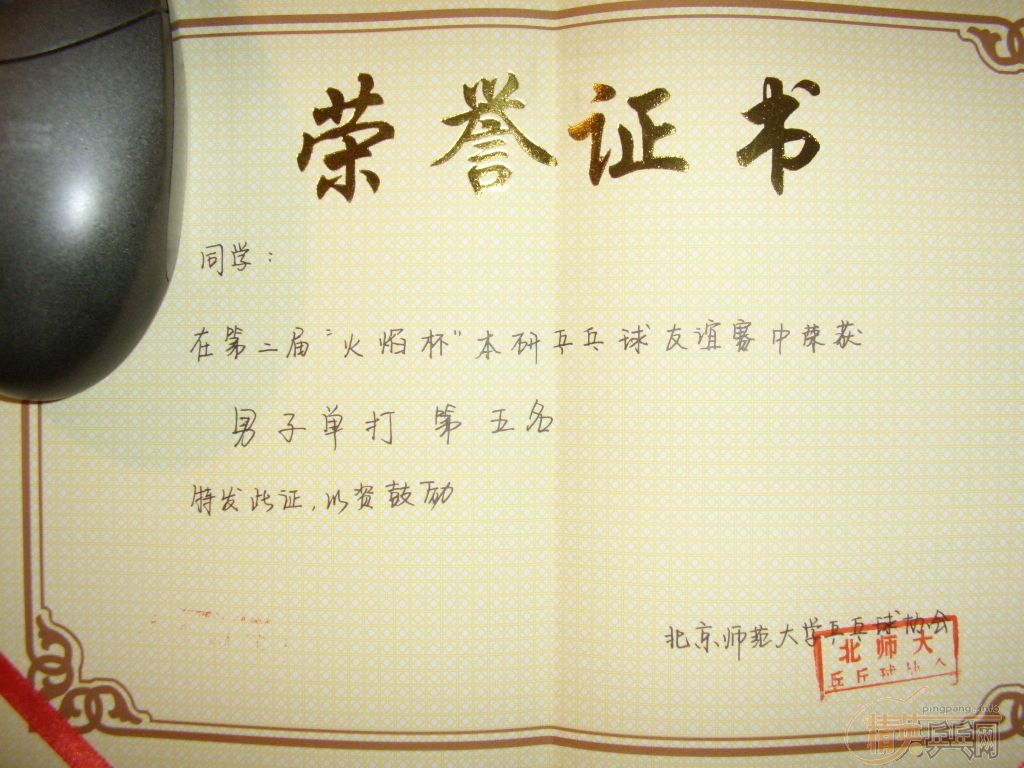 荣誉证书
同学：
在第二届“火焰杯”本研乒乓球友谊赛中荣获
男子单打 第五名
特发此证，以资鼓励
北京师范大学乒乓球协会
北师大
乒乓球协会
pingpang.info
精英乒乓网